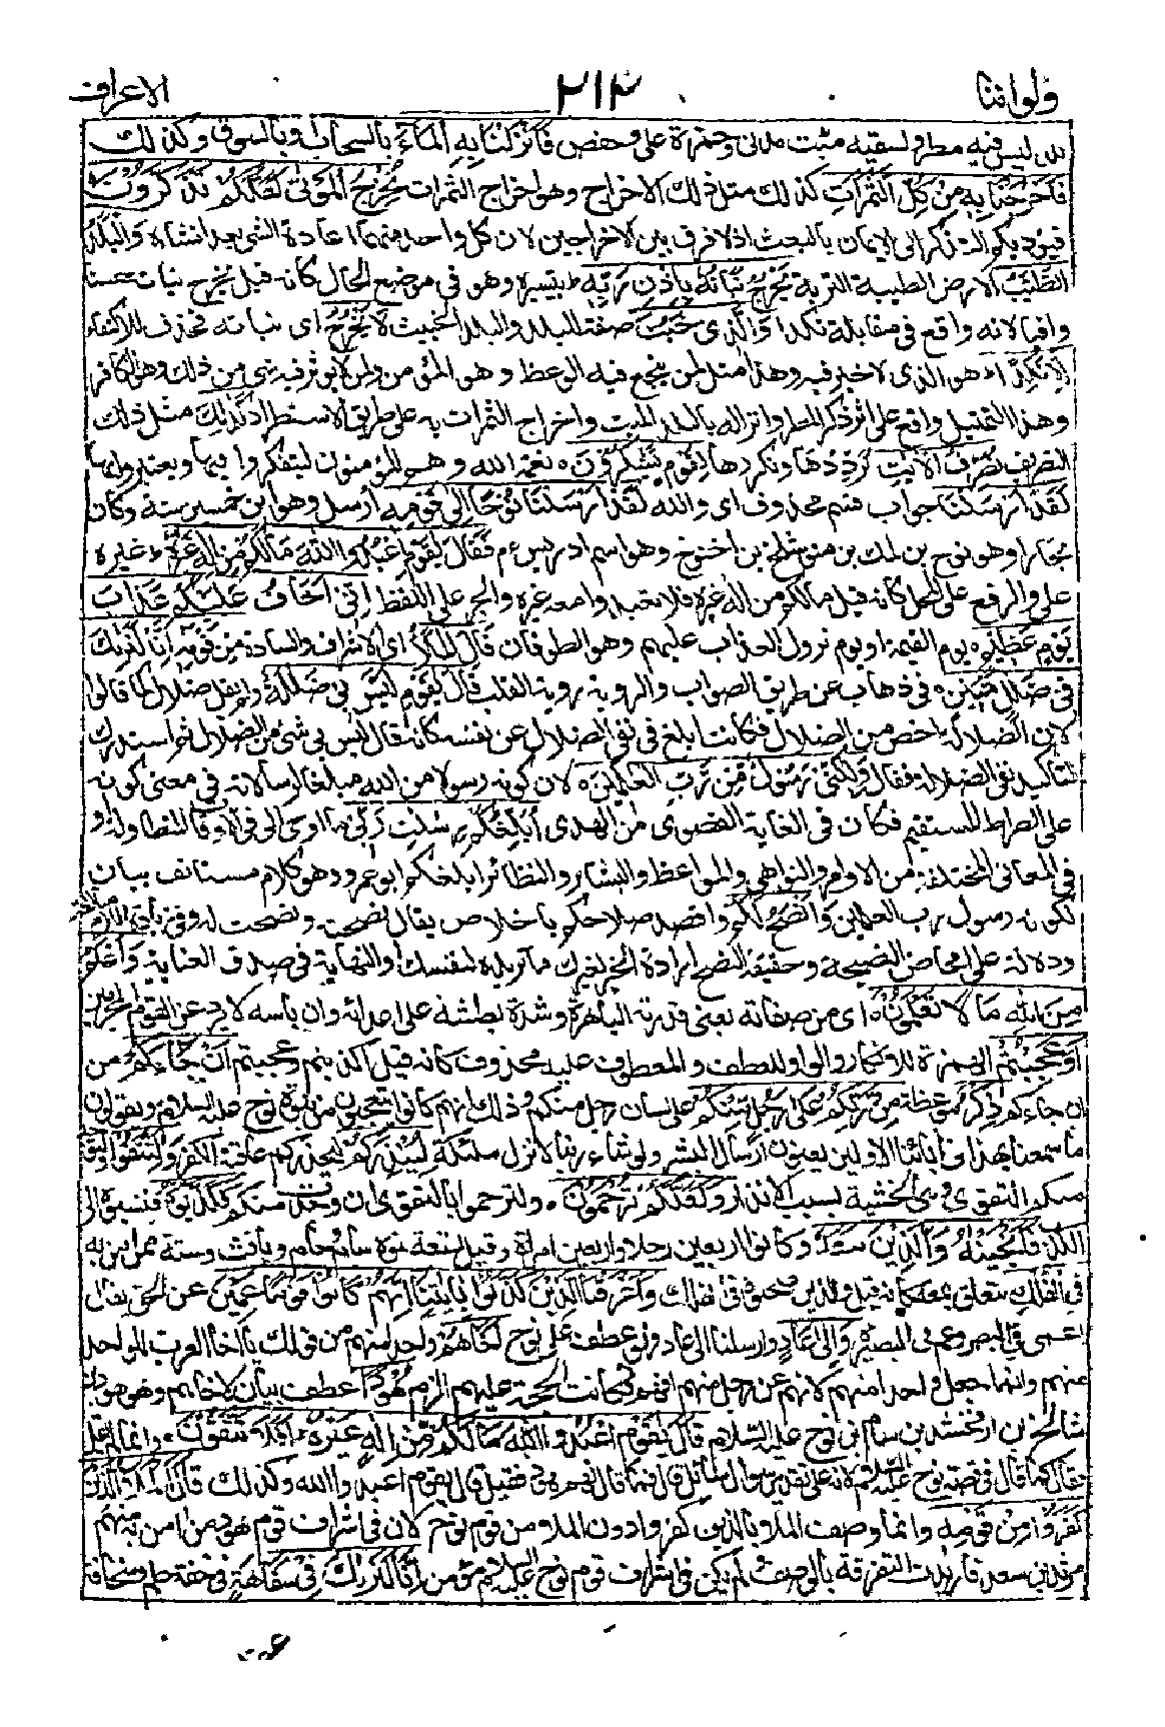 ولواننا ٢١٤ الاعراف
بلد ليس فيه مطر ولسقيه ميت مدنى وحمزة على وحفص فَاَنْزَلْنَا بِهِ الْمَآءَ بالسحاب او بالسوق وكذلك
فَاَخْرَجْنَا بِهٖ مِنْ كُلِّ الثَّمَرٰتِ كَذٰلِكَ مثل ذلك الاخراج وهو اخراج الثمرات نُخْرِجُ الْمَوْتٰى لَعَلَّكُمْ تَذَكَّرُوْنَ
فيؤديكم التذكر الى الايمان بالبعث اذ لا فرق بين الاخراجين لان كل واحد منهما اعادة الشئ بعد انشائه وَالْبَلَدُ
الطَّيِّبُ الارض الطيبة التربة يَخْرُجُ نَبَاتُهٗ بِاِذْنِ رَبِّهٖ بتيسيره وهو فى موضع الحال كانه قيل يخرج نباته حسنا
وافيا لانه واقع فى مقابلة نكدا وَالَّذِىْ خَبُثَ صفة للبلد اى والبلد الخبيث لَا يَخْرُجُ اى نباته فحذف للاكتفاء
اِلَّا نَكِدًا هو الذى لا خير فيه وهذا مثل لمن ينجع فيه الوعظ وهو المؤمن ولمن لا يؤثر فيه شئ من ذلك وهو الكافر
وهذا التمثيل واقع على اثر ذكر المطر وانزاله بالبلد الميت واخراج الثمرات به على طريق الاستطراد كَذٰلِكَ مثل ذلك
التصريف نُصَرِّفُ الْاٰيٰتِ نرددها ونكررها لِقَوْمٍ يَّشْكُرُوْنَ نعمة الله وهم المؤمنون ليتفكروا فيها ويعتبروا بها
لَقَدْ اَرْسَلْنَا جواب قسم محذوف اى والله لَقَدْ اَرْسَلْنَا نُوْحًا اِلٰى قَوْمِهٖ ارسل وهو ابن خمسين سنة وكان
نجارا وهو نوح بن لمك بن متوشلخ بن اخنوخ وهو اسم ادريس ع م فَقَالَ يٰقَوْمِ اعْبُدُوا اللّٰهَ مَا لَكُمْ مِّنْ اِلٰهٍ غَيْرُهٗ غيره
على والرفع على المحل كانه قيل ما لكم من اله غيره فلا تعبدوا معه غيره والجر على اللفظ اِنِّىْٓ اَخَافُ عَلَيْكُمْ عَذَابَ
يَوْمٍ عَظِيْمٍ يوم القيمة او يوم نزول العذاب عليهم وهو الطوفان قَالَ الْمَلَاُ اى الاشراف والسادة مِنْ قَوْمِهٖٓ اِنَّا لَنَرٰىكَ
فِىْ ضَلٰلٍ مُّبِيْنٍ فى ذهاب عن طريق الصواب والرؤية رؤية القلب قَالَ يٰقَوْمِ لَيْسَ بِىْ ضَلٰلَةٌ ولم يقل ضلال كما قالوا
لان الضلالة اخص من الضلال فكانت ابلغ فى نفى الضلال عن نفسه كانه قال ليس بى شئ من الضلال ثم استدرك
لتاكيد نفى الضلالة فقال وَلٰكِنِّىْ رَسُوْلٌ مِّنْ رَّبِّ الْعٰلَمِيْنَ لان كونه رسولا من الله مبلغا لرسالاته فى معنى كونه
على الصراط المستقيم فكان فى الغاية القصوى من الهدى اُبَلِّغُكُمْ رِسٰلٰتِ رَبِّىْ ما اوحى الى فى الاوقات المتطاولة او
فى المعانى المختلفة من الاوامر والنواهى والمواعظ والبشائر والنظائر ابلغكم ابو عمرو وهو كلام مستانف بيان
لكونه رسول رب العلمين وَاَنْصَحُ لَكُمْ واقصد صلاحكم باخلاص يقال نصحته ونصحت له وفى زيادة اللام مبالغة
ودلالة على امحاض النصيحة وحقيقة النصح ارادة الخير لغيرك مما تريده لنفسك او النهاية فى صدق العناية وَاَعْلَمُ
مِنَ اللّٰهِ مَا لَا تَعْلَمُوْنَ اى من صفاته يعنى قدرته الباهرة وشدة بطشه على اعدائه وان باسه لا يرد عن القوم المجرمين
اَوَعَجِبْتُمْ الهمزة للانكار والواو للعطف والمعطوف عليه محذوف كانه قيل اكذبتم وعجبتم اَنْ جَآءَكُمْ من
ان جاءكم ذِكْرٌ موعظة مِّنْ رَّبِّكُمْ عَلٰى رَجُلٍ مِّنْكُمْ على لسان رجل منكم وذلك انهم كانوا يتعجبون من نبوة نوح عليه السلام ويقولون
ما سمعنا بهذا فى ابائنا الاولين يعنون ارسال البشر ولو شاء ربنا لانزل ملئكة لِيُنْذِرَكُمْ ليحذركم عاقبة الكفر وَلِتَتَّقُوْا ولتوجد
منكم التقوى وهى الخشية بسبب الانذار وَلَعَلَّكُمْ تُرْحَمُوْنَ ولترحموا بالتقوى ان وجدت منكم فَكَذَّبُوْهُ فنسبوه الى
الكذب فَاَنْجَيْنٰهُ وَالَّذِيْنَ مَعَهٗ وكانوا اربعين رجلا واربعين امراة وقيل تسعة بنوه سام وحام ويافث وستة ممن امن به
فِى الْفُلْكِ يتعلق بمعه كانه قيل والذين صحبوه فى الفلك وَاَغْرَقْنَا الَّذِيْنَ كَذَّبُوْا بِاٰيٰتِنَا اِنَّهُمْ كَانُوْا قَوْمًا عَمِيْنَ عن الحق يقال
اعمى فى البصر وعم فى البصيرة وَاِلٰى عَادٍ وارسلنا الى عاد وهو عطف على نوح اَخَاهُمْ واحدا منهم من قولك يا اخا العرب للواحد
منهم وانما جعل واحدا منهم لانهم عن رجل منهم افهم فكانت الحجة عليهم الزم هُوْدًا عطف بيان لاخاهم وهو هود بن
شالخ بن ارفخشد بن سام بن نوح عليه السلام قَالَ يٰقَوْمِ اعْبُدُوا اللّٰهَ مَا لَكُمْ مِّنْ اِلٰهٍ غَيْرُهٗ اَفَلَا تَتَّقُوْنَ وانما لم يقل
فقال كما قال فى قصة نوح عليه السلام لانه على تقدير سوال سائل قال فما قال لهم هود فقيل قال يقوم اعبدوا الله وكذلك قَالَ الْمَلَاُ الَّذِيْنَ
كَفَرُوْا مِنْ قَوْمِهٖ وانما وصف الملا بالذين كفروا دون الملا من قوم نوح لان فى اشراف قوم هود من امن به منهم
مرثد بن سعد فاريدت التفرقة بالوصف ولم يكن فى اشراف قوم نوح عليه السلام مؤمن اِنَّا لَنَرٰىكَ فِىْ سَفَاهَةٍ فى خفة حلم وسخافة